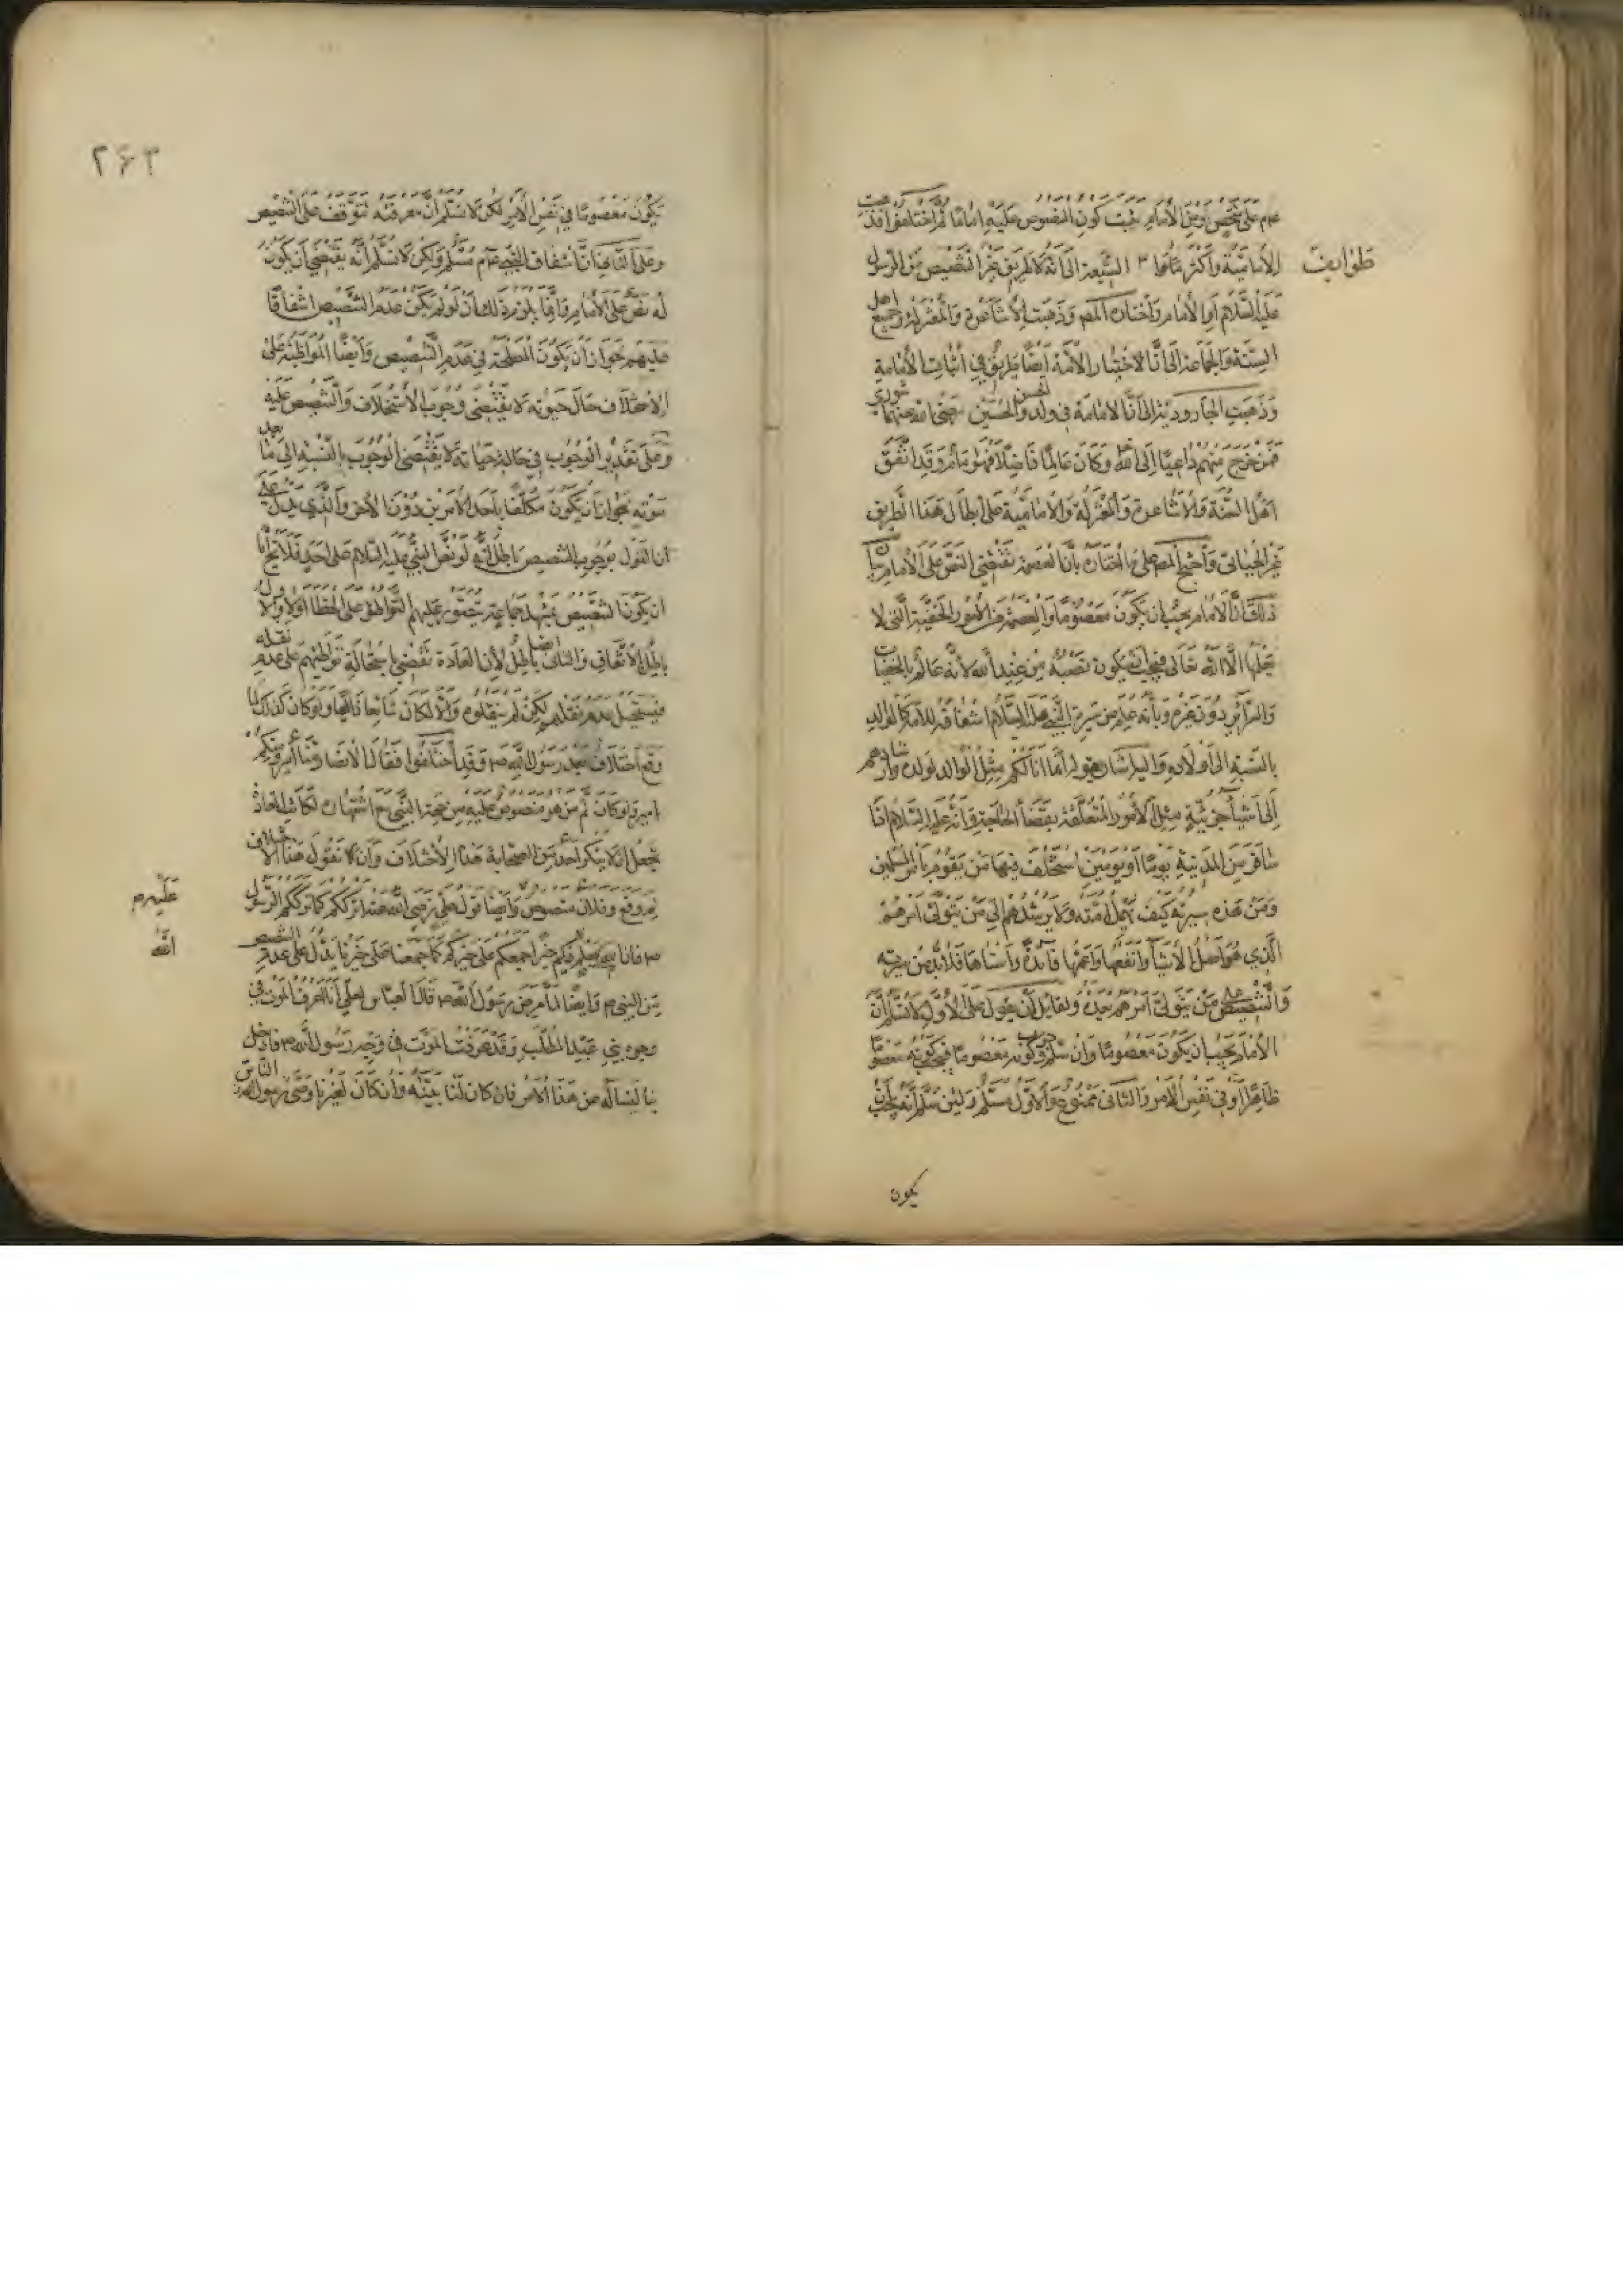 عم على شخص ومن الأمام ثبت كون المنصوص عليه امامًا ثم اختلفوا فذهبت
الأمامية وأكثر طوايف الشيعة الى أنه لا طريق غير التنصيص من الرسول
عليه السلام او الأمام واختاره المصم وذهبت الأشاعرة والمعتزلة وجميع اهل
السنة والجماعة الى أنّ الاختيار الأمة ايضا طريق في أثبات الأمامة
وذهبت الجارودية الى أنّ الامامة في ولد الحسن والحسين رضي الله عنهما شورى
فمن خرج منهم داعيًا إلى الله وكان عالمًا فاضلًا فهو امام وقد اتفق
اهل السنة والأشاعرة والمعتزلة والأمامية على أبطال هذا الطريق
غير الجبائي وأحتج المصم على ما اختاره بأنّ العصمة تقتضي النص على الأمام بيان
ذلك أنّ الأمام يجب ان يكون معصومًا والعصمة من الأمور الخفية التي لا
يعلمها الّا الله تعالى فيجب ان يكون نصبه من عند الله لأنه عالم بالخفيات
والسرائر دون غيره وبأنه علم من سيرة النبي عليه السلام اشفاقه للأمة كالوالد
بالنسبة الى أولاده واليه اشار بقوله إنما انا لكم مثل الوالد لولده وارشادهم
إلى أشياء جزئية مثل الأمور المتعلقة بقضاء الحاجة وأنه عليه السلام اذا
سافر من المدينة يومًا أو يومين استخلف فيها من يقوم بأمر المسلمين
ومن هذه سيرته كيف يهمل أمته ولا يرشدهم إلى من يتولى أمرهم
الّذي هو اصل الأشياء وأنفعها وأعمّها فائدة وأسناها فلا بد من سيرته
والتنصيص على من يتولى أمرهم بعده ولقايل أن يقول على الأول لا نسلم أنّ
الأمام يجب أن يكون معصومًا وإن سلم وجوب كونه معصومًا فيجب كونه معصومًا
ظاهرًا أو في نفس الأمر والثاني ممنوع والأول مسلم ولئن سلم أنه يجب أن
يكون
۲۶۳
يكون معصومًا في نفس الأمر لكن لا نسلم أنّ معرفته تتوقف على التنصيص
وعلى الثاني أنّ اشفاق النبي عم مسلم ولكن لا نسلم أنه يقتضي أن يكون
له نص على الأمام وانما يلزم ذلك أن لو لم يكن عدم التنصيص اشفاقًا
عليهم لجواز أن يكون المصلحة في عدم التنصيص وأيضًا المواظبة على
الاستخلاف حال حيوته لا يقتضي وجوب الأستخلاف والتنصيص عليه
وعلى تقدير الوجوب في حالة حياته لا يقتضي الوجوب بالنسبة إلى ما بعد
موته لجواز أن يكون مكلفًا بأحد الأمرين دون الآخر والذي يدل على
ان القول بوجوب التنصيص باطل انه لو نص النبي عليه السلام على احد فلا يخ أما
ان يكون التنصيص بمشهد جماعة يتصور عليهم التواطؤ على الخطا اولا والاول
باطل بالأتفاق والثاني ايضا باطل لأن العادة تقضي باستحالة تواطئهم على عدم نقله
فيستحيل عدم نقلهم لكن لم ينقلوه وألا لكان شايعًا ذايعًا ولو كان كذلك لما
وقع اختلاف بعد رسول الله صم وقد اختلفوا فقال الأنصار منا أمير ومنكم
امير ولو كان ثم من هو منصوص عليه من جهة النبي مع اشتهاره لكانت العادة
تحيل ان لا ينكر أحد من الصحابة هذا الأختلاف وأن لا نقول هذا الاختلاف
لم وقع وفلان منصوص عليه وأيضًا قول علي رضي الله عنه اترككم كما ترككم الرسول
صم فان يعلم الله فيكم خيرا جمعكم على خيركم كما جمعنا على خيرنا يدل على عدم التنصيص
من النبي صم وايضًا لما مرض رسول الله صم قال العباس لعلي أنا أعرف الموت في
وجوه بني عبد المطلب وقد عرفت الموت في وجه رسول الله صم فادخل
بنا لنسأله عن هذا الأمر فان كان لنا بينه وان كان لغيرنا وصى رسول الله الناس